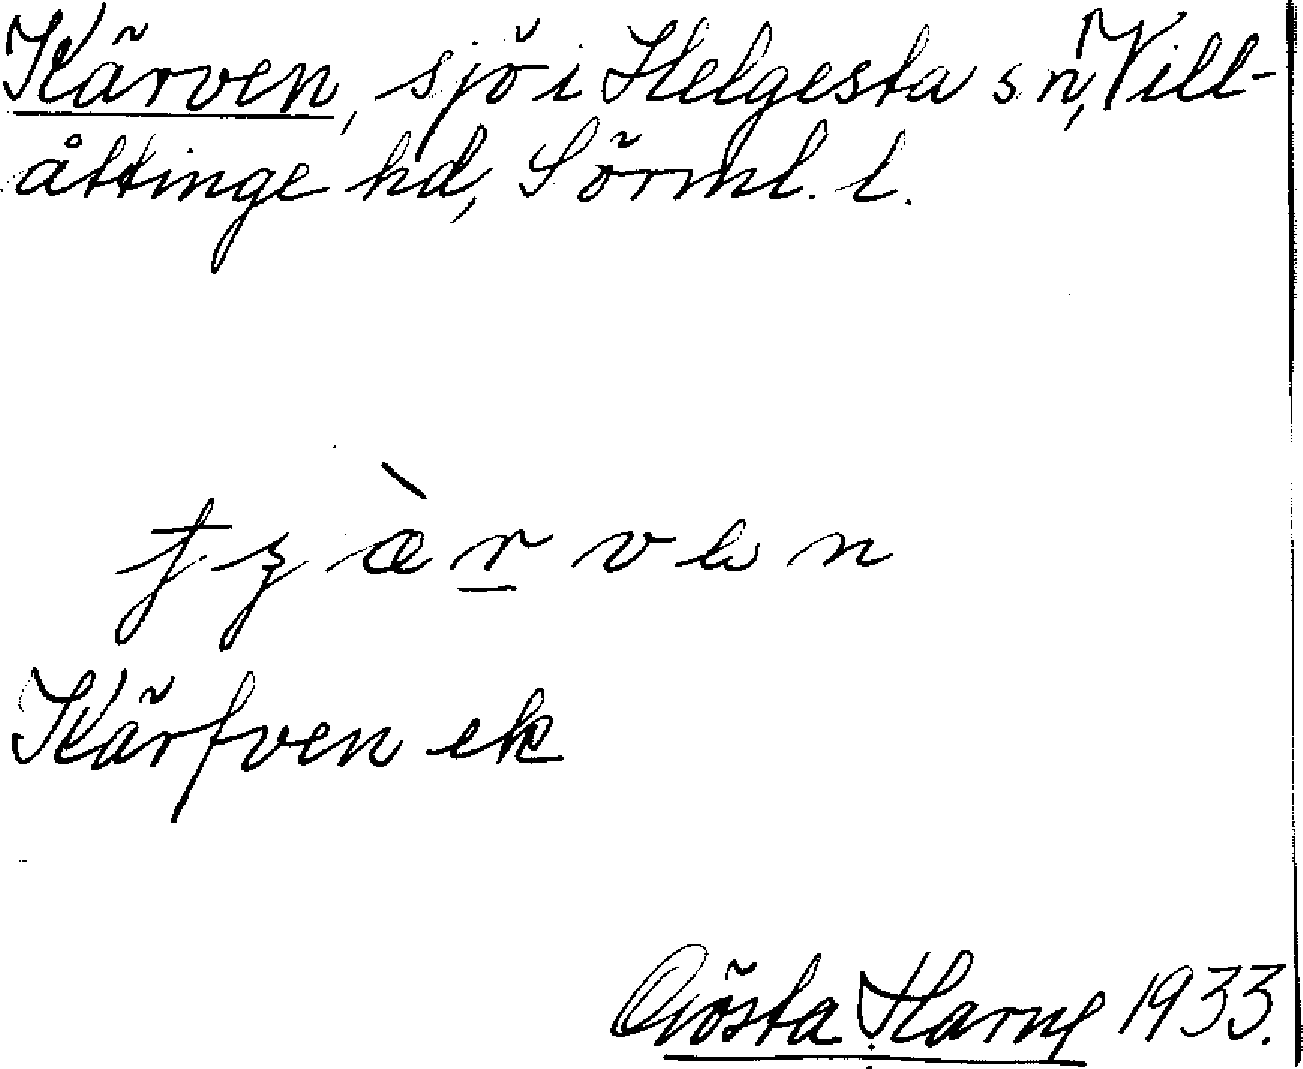 Kärven, sjö i Helgesta sn, Vill-
åttinge hd, Sörml. l.
Kärfven ek
Gösta 1933.